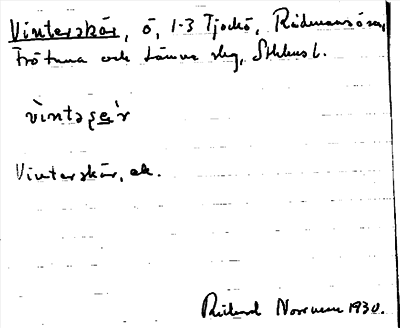 Vinterskär, ö, 1-3 Tjockö, Rådmansö sn,
Frötuna och Länna skg, Sthlms l.
vintsçe̲r
Vinterskär, ek.
Rickard Norrman 1930.